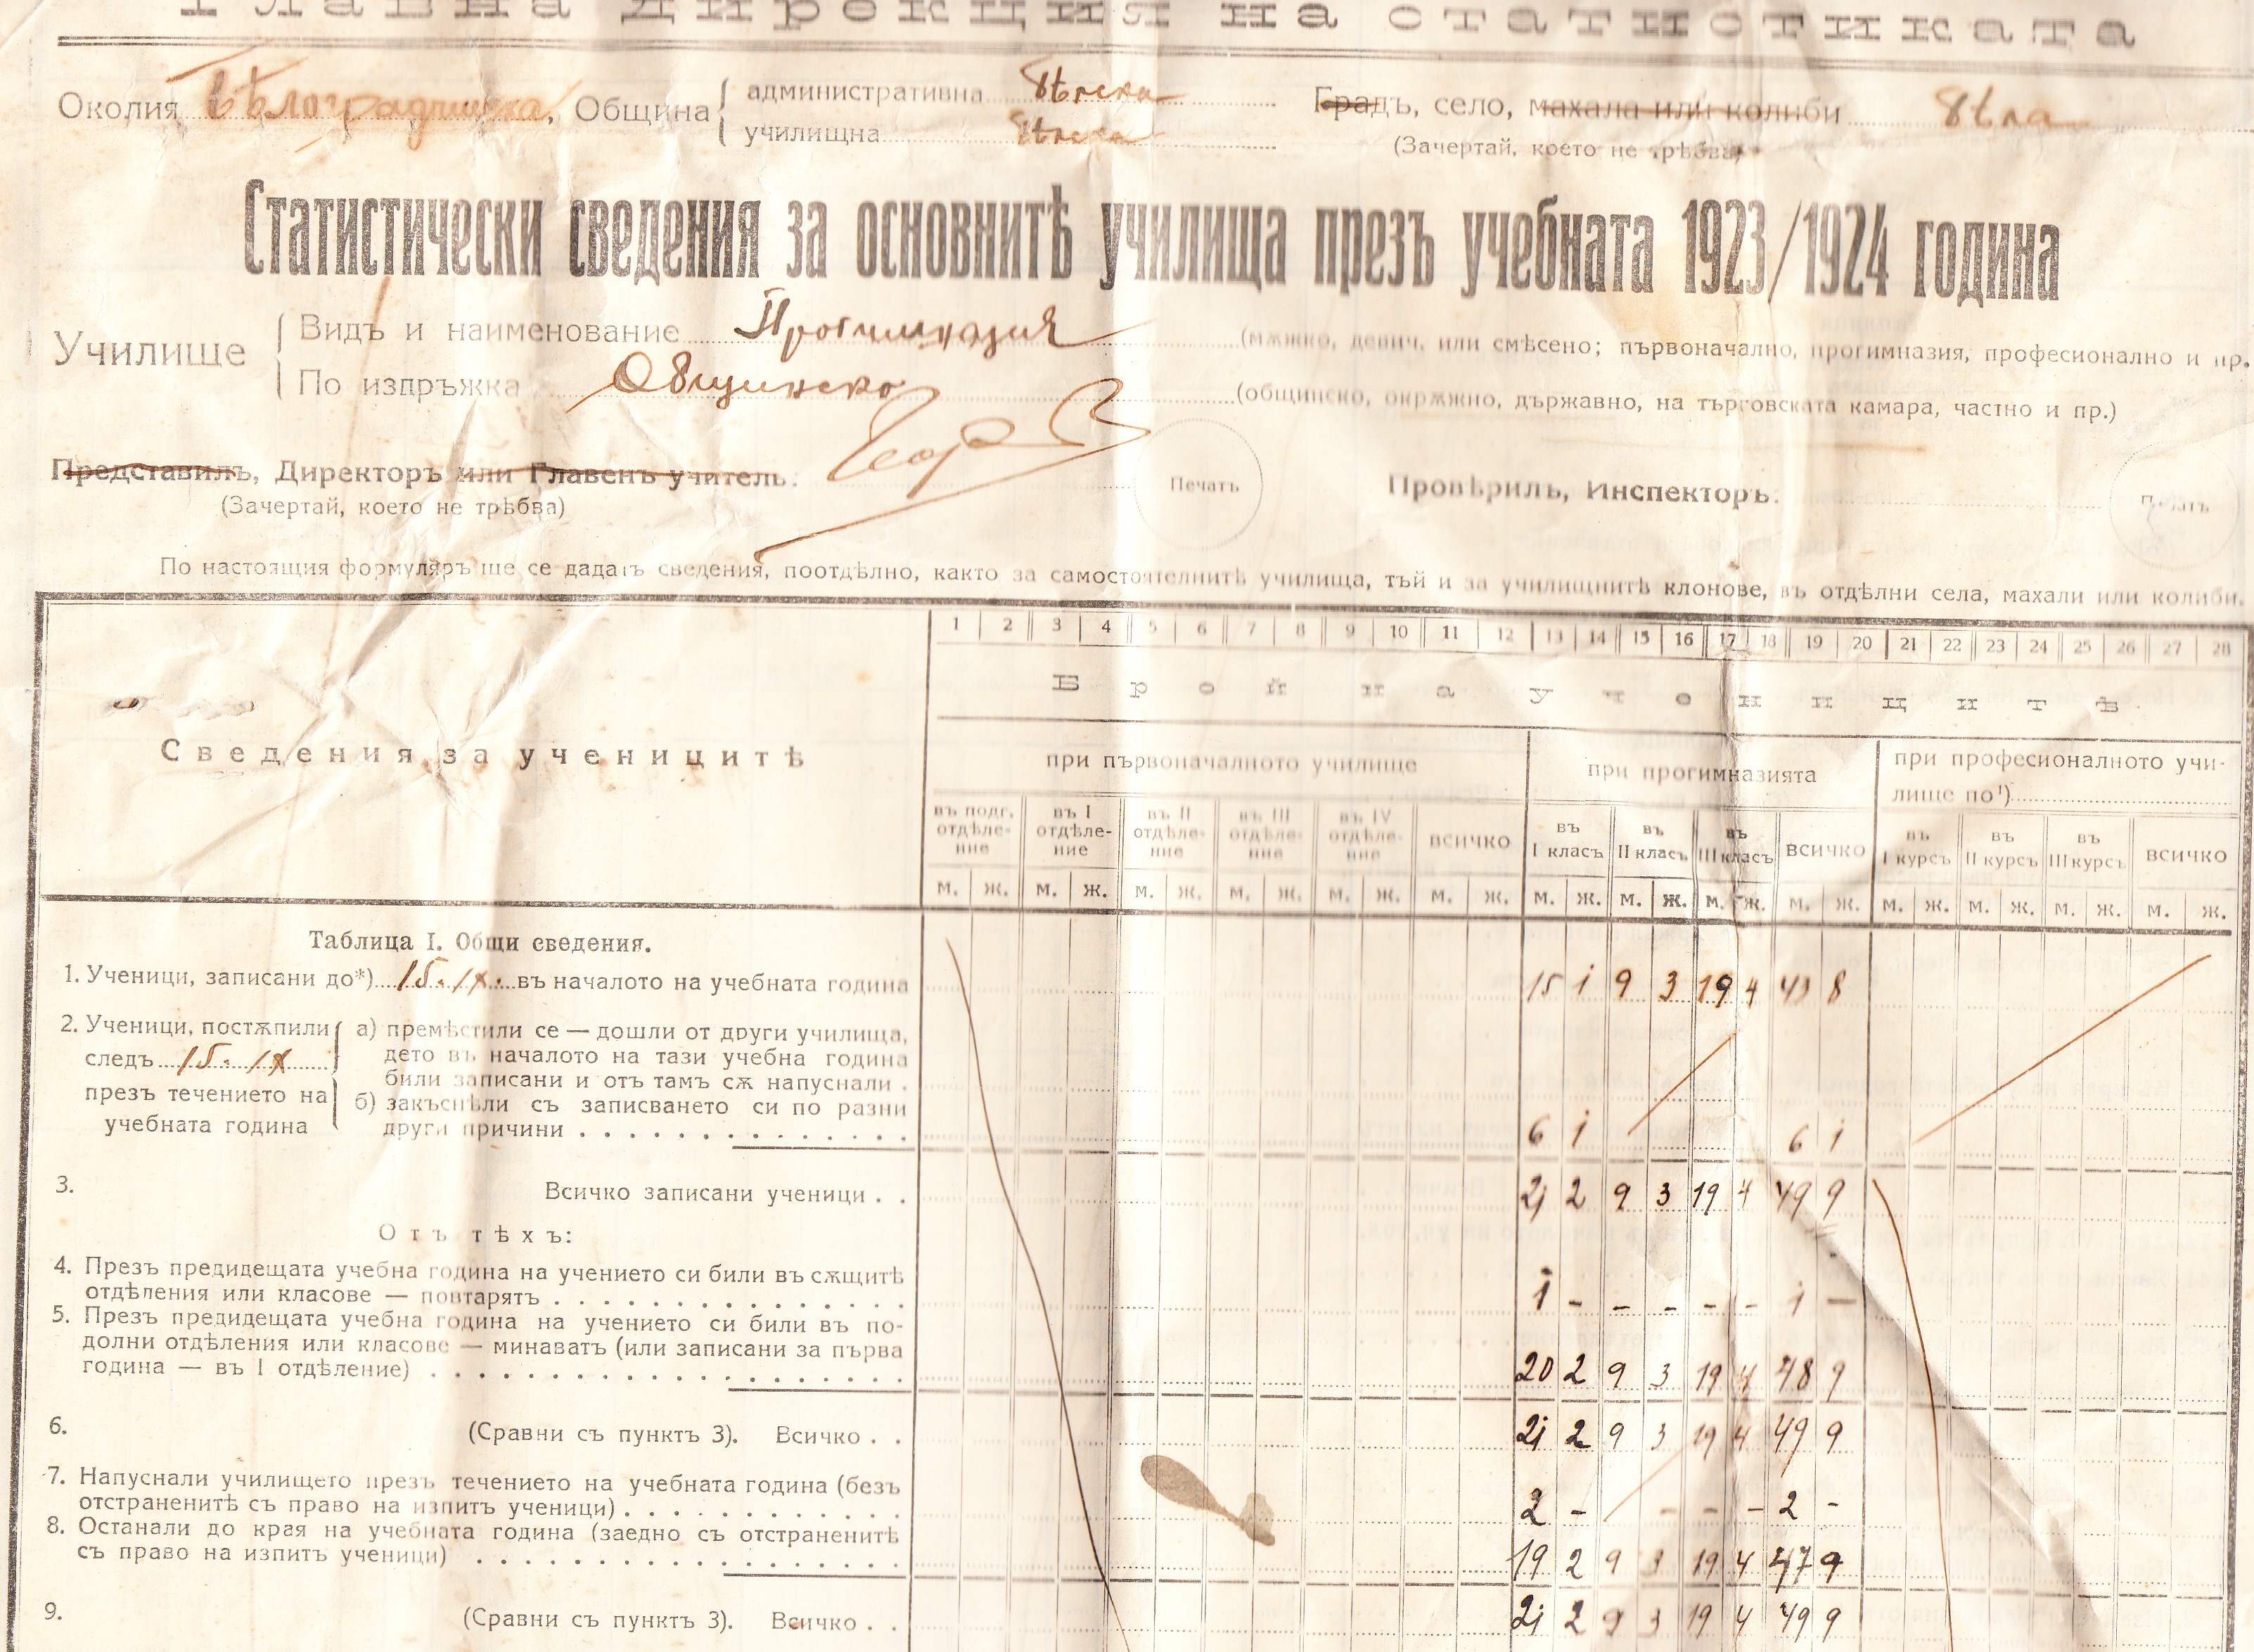 Главна дирекция на статистиката
Околия Бѣлоградчишка, Община административна Бѣлска
училищна Бѣлска
Градъ, село, махала или колиби Бѣла
(Зачертай, което не трѣбва)
Статистически сведения за основнитѣ училища презъ учебната 1923/1924 година
Училище
Видъ и наименование Прогимназия (мѫжко, девич. или смѣсено; първоначално, прогимназия, професионално и пр.
По издръжка Общинско (общинско, окрѫжно, държавно, на търговската камара, частно и пр.)
Представилъ, Директоръ или Главенъ учитель:
Печать
Провѣрилъ, Инспекторъ:
Печать
(Зачертай, което не трѣбва)
По настоящия формуляръ ще се дадатъ сведения, поотдѣлно, както за самостоятелнитѣ училища, тъй и за училищнитѣ клонове, въ отдѣлни села, махали или колиби.
1 2 3 4 5 6 7 8 9 10 11 12 13 14 15 16 17 18 19 20 21 22 23 24 25 26 27 28
Брой на ученицитѣ
Сведения за ученицитѣ
при първоначалното училище
при прогимназията
при професионалното училище по¹)
въ подг. отдѣление
въ I отдѣление
въ II отдѣление
въ III отдѣление
въ IV отдѣление
всичко
въ I класъ
въ II класъ
въ III класъ
всичко
въ I курсъ
въ II курсъ
въ III курсъ
всичко
м. ж. м. ж. м. ж. м. ж. м. ж. м. ж. м. ж. м. ж. м. ж. м. ж. м. ж. м. ж. м. ж. м. ж.
Таблица I. Общи сведения.
1. Ученици, записани до*) 15.IX. въ началото на учебната година 15 1 9 3 19 4 43 8
2. Ученици, постѫпили следъ 15.IX презъ течението на учебната година
а) премѣстили се — дошли от други училища,
дето въ началото на тази учебна година
били записани и отъ тамъ сѫ напуснали .
б) закъснѣли съ записването си по разни
други причини . . . . 6 1 6 1
3. Всичко записани ученици . . 21 2 9 3 19 4 49 9
Отъ тѣхъ:
4. Презъ предидещата учебна година на учението си били въ сѫщитѣ
отдѣления или класове — повтарятъ . . . . 1 - - - - - 1 —
5. Презъ предидещата учебна година на учението си били въ по-
долни отдѣления или класове — минаватъ (или записани за първа
година — въ I отдѣление) . . . . 20 2 9 3 19 4 48 9
6. (Сравни съ пунктъ 3). Всичко . . 21 2 9 3 19 4 49 9
7. Напуснали училището презъ течението на учебната година (безъ
отстраненитѣ съ право на изпитъ ученици) . . . . 2 - - - - 2 -
8. Останали до края на учебната година (заедно съ отстраненитѣ
съ право на изпитъ ученици) . . . . 19 2 9 3 19 4 47 9
9. (Сравни съ пунктъ 3). Всичко . . 21 2 9 3 19 4 49 9